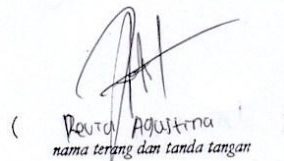 ( Revid Agustina
nama terang dan tanda tangan